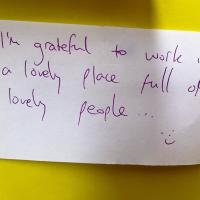 I'm grateful to work
a lovely place full of
lovely people...
:)